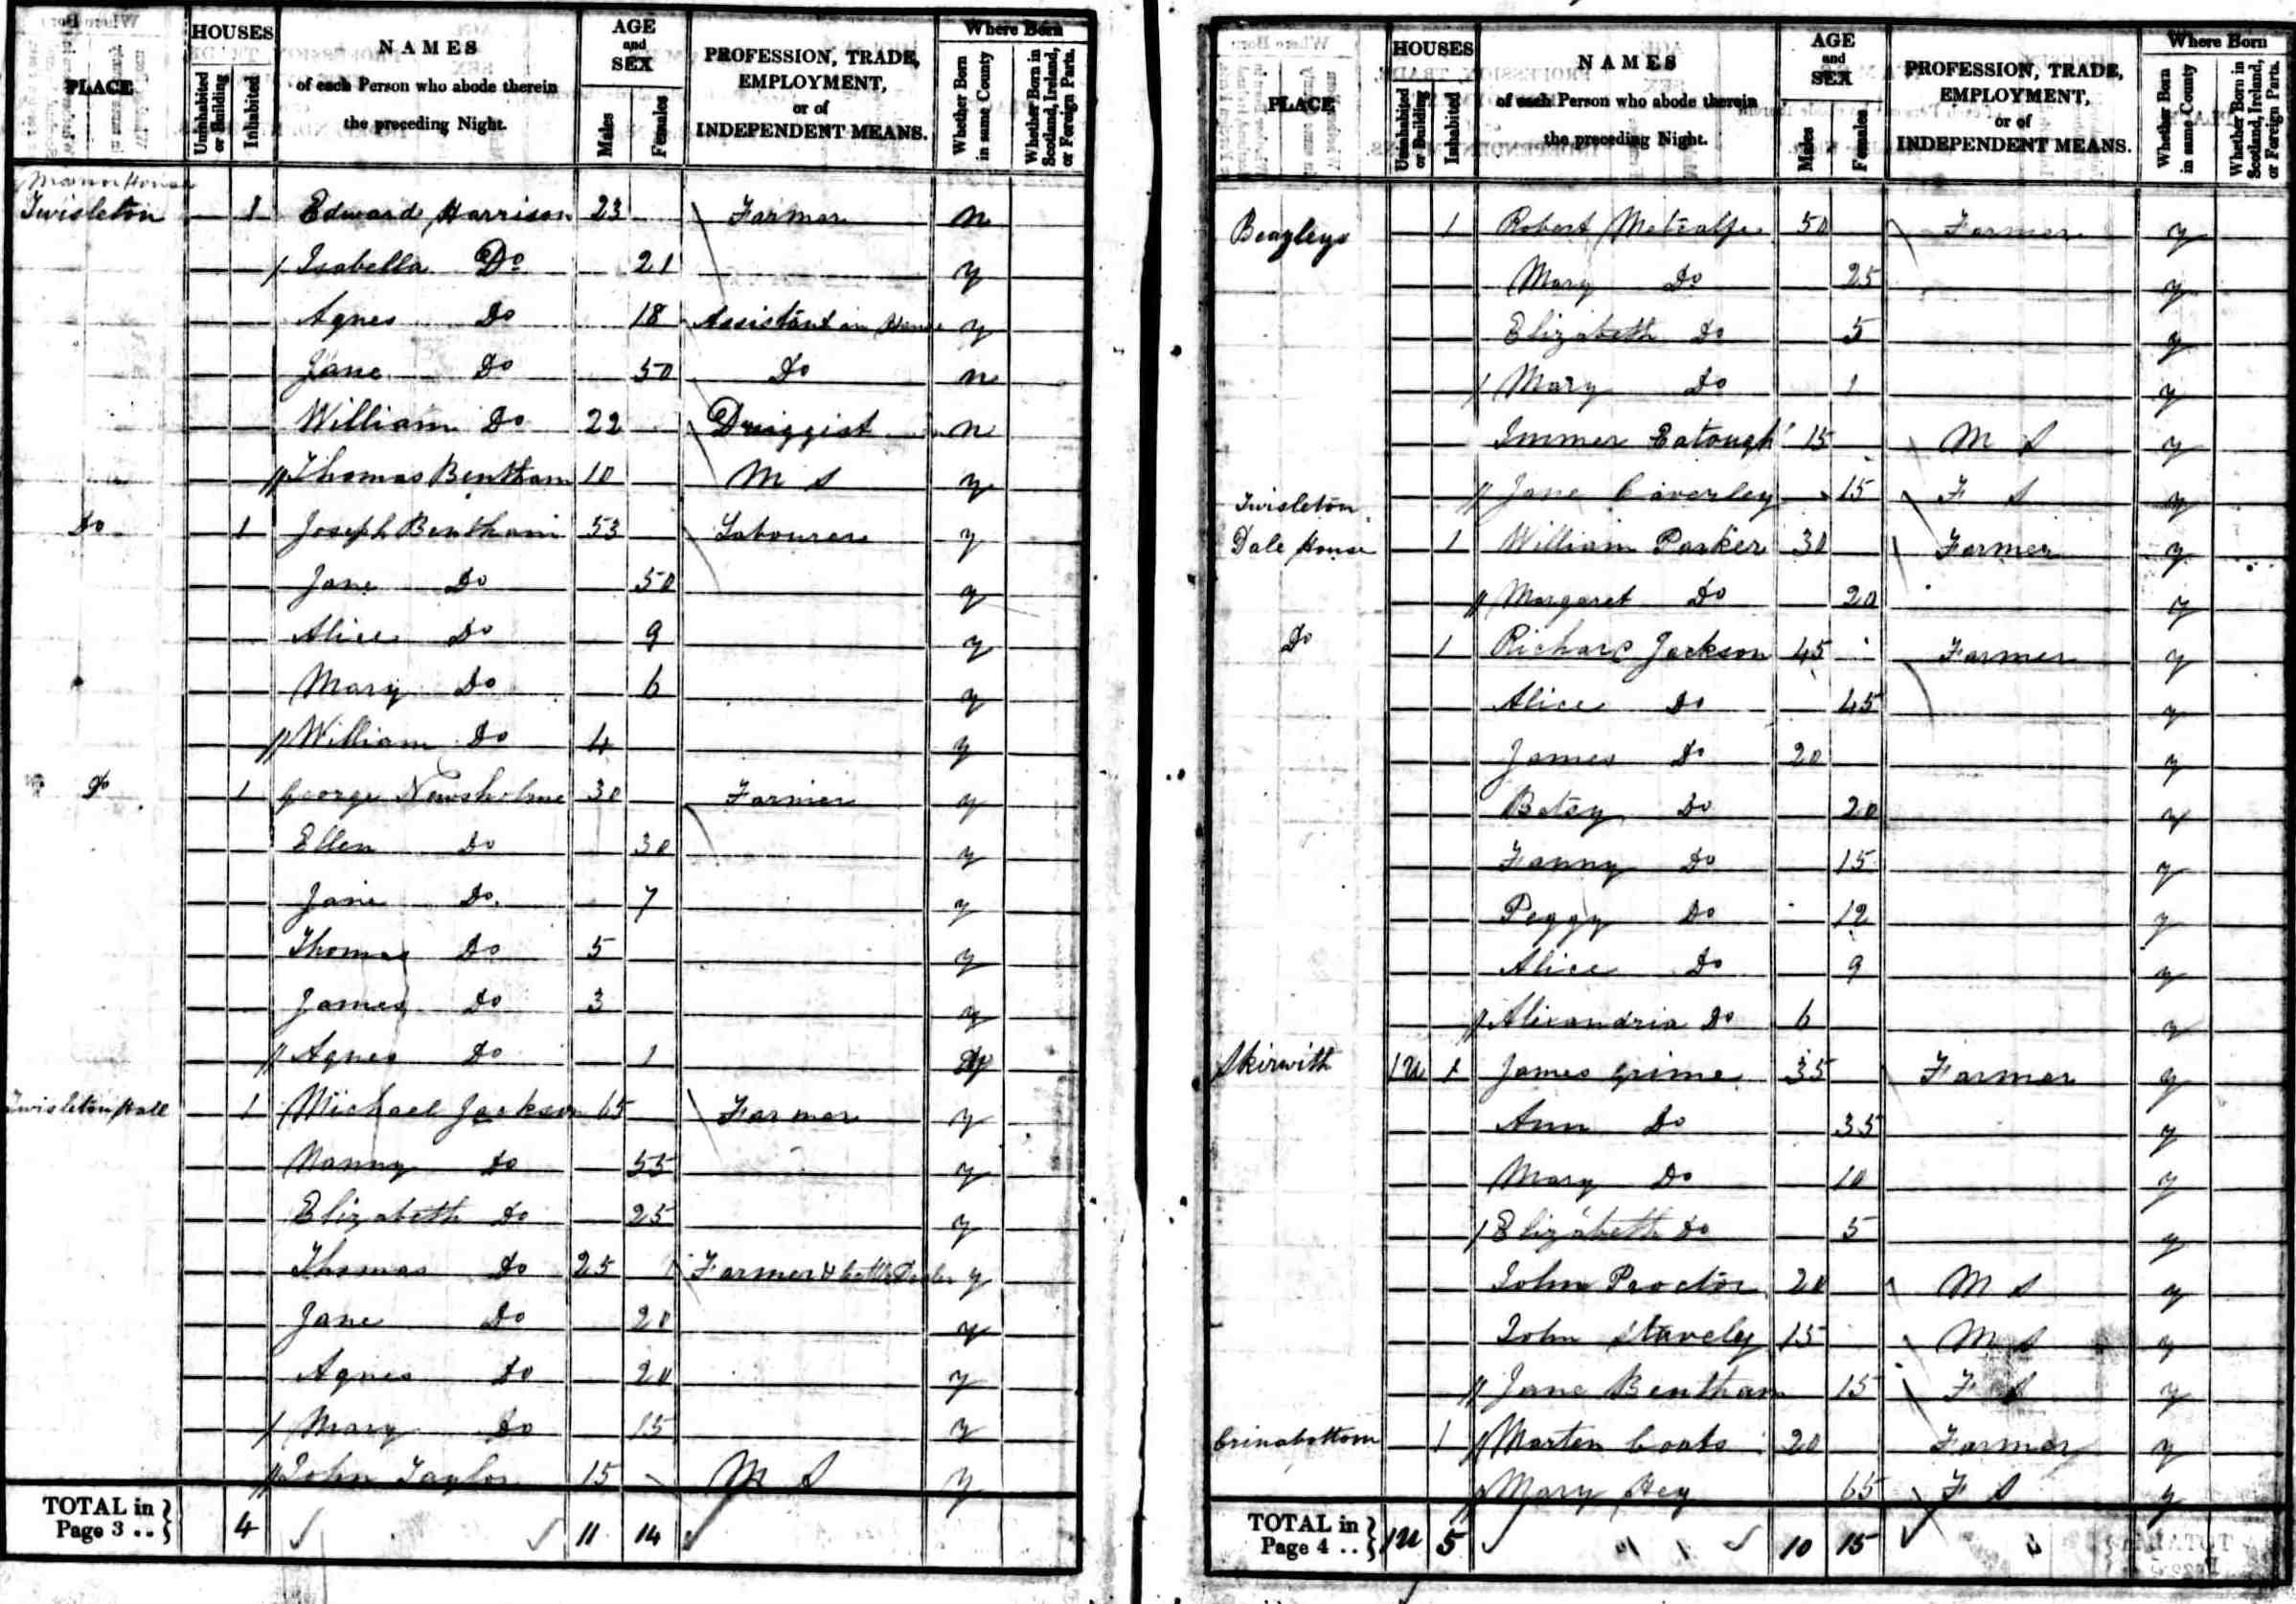 PLACE HOUSES Uninhabited or Building Inhabited NAMES of each Person who abode therein the preceding Night. AGE and SEX Males Females PROFESSION, TRADE, EMPLOYMENT, or of INDEPENDENT MEANS. Where Born Whether Born in same County Whether Born in Scotland, Ireland, or Foreign Parts.
Manor House
Twisleton 1 Edward Harrison 23 Farmer n
Isabella Do 21 y
Agnes Do 18 Assistant in House y
Jane Do 50 Do n
William Do 22 Druggist n
Thomas Bentham 10 M S y
Do 1 Joseph Bentham 53 Labourer y
Jane Do 50 y
Alice Do 9 y
Mary Do 6 y
William Do 4 y
Do 1 George Newsholme 30 Farmer y
Ellen Do 30 y
Jane Do 7 y
Thomas Do 5 y
James Do 3 y
Agnes Do 1 y
Twisleton Hall 1 Michael Jackson 65 Farmer y
Nanny Do 55 y
Elizabeth Do 25 y
Thomas Do 25 Farmer & Cattle Dealer y
Jane Do 20 y
Agnes Do 20 y
Mary Do 15 y
John Taylor 15 M S y
TOTAL in Page 3 .. 4 11 14
PLACE HOUSES Uninhabited or Building Inhabited NAMES of each Person who abode therein the preceding Night. AGE and SEX Males Females PROFESSION, TRADE, EMPLOYMENT, or of INDEPENDENT MEANS. Where Born Whether Born in same County Whether Born in Scotland, Ireland, or Foreign Parts.
Beazleys 1 Robert Metcalfe 50 Farmer y
Mary Do 25 y
Elizabeth Do 5 y
Mary Do 1 y
Immer Eatough 15 M S y
Jane Caverley 15 F S y
Twisleton
Dale House 1 William Parker 30 Farmer y
Margaret Do 20 y
Do 1 Richard Jackson 45 Farmer y
Alice Do 45 y
James Do 20 y
Betsy Do 20 y
Fanny Do 15 y
Peggy Do 12 y
Alice Do 9 y
Alixandria Do 6 y
Skirwith 1U 1 James Grime 35 Farmer y
Ann Do 35 y
Mary Do 10 y
Elizabeth Do 5 y
John Proctor 20 M S y
John Stavely 15 M S y
Jane Bentham 15 F S y
Crinabottom 1 Marten Coats 20 Farmer y
Mary Hey 65 F S y
TOTAL in Page 4 .. 1U 5 10 15